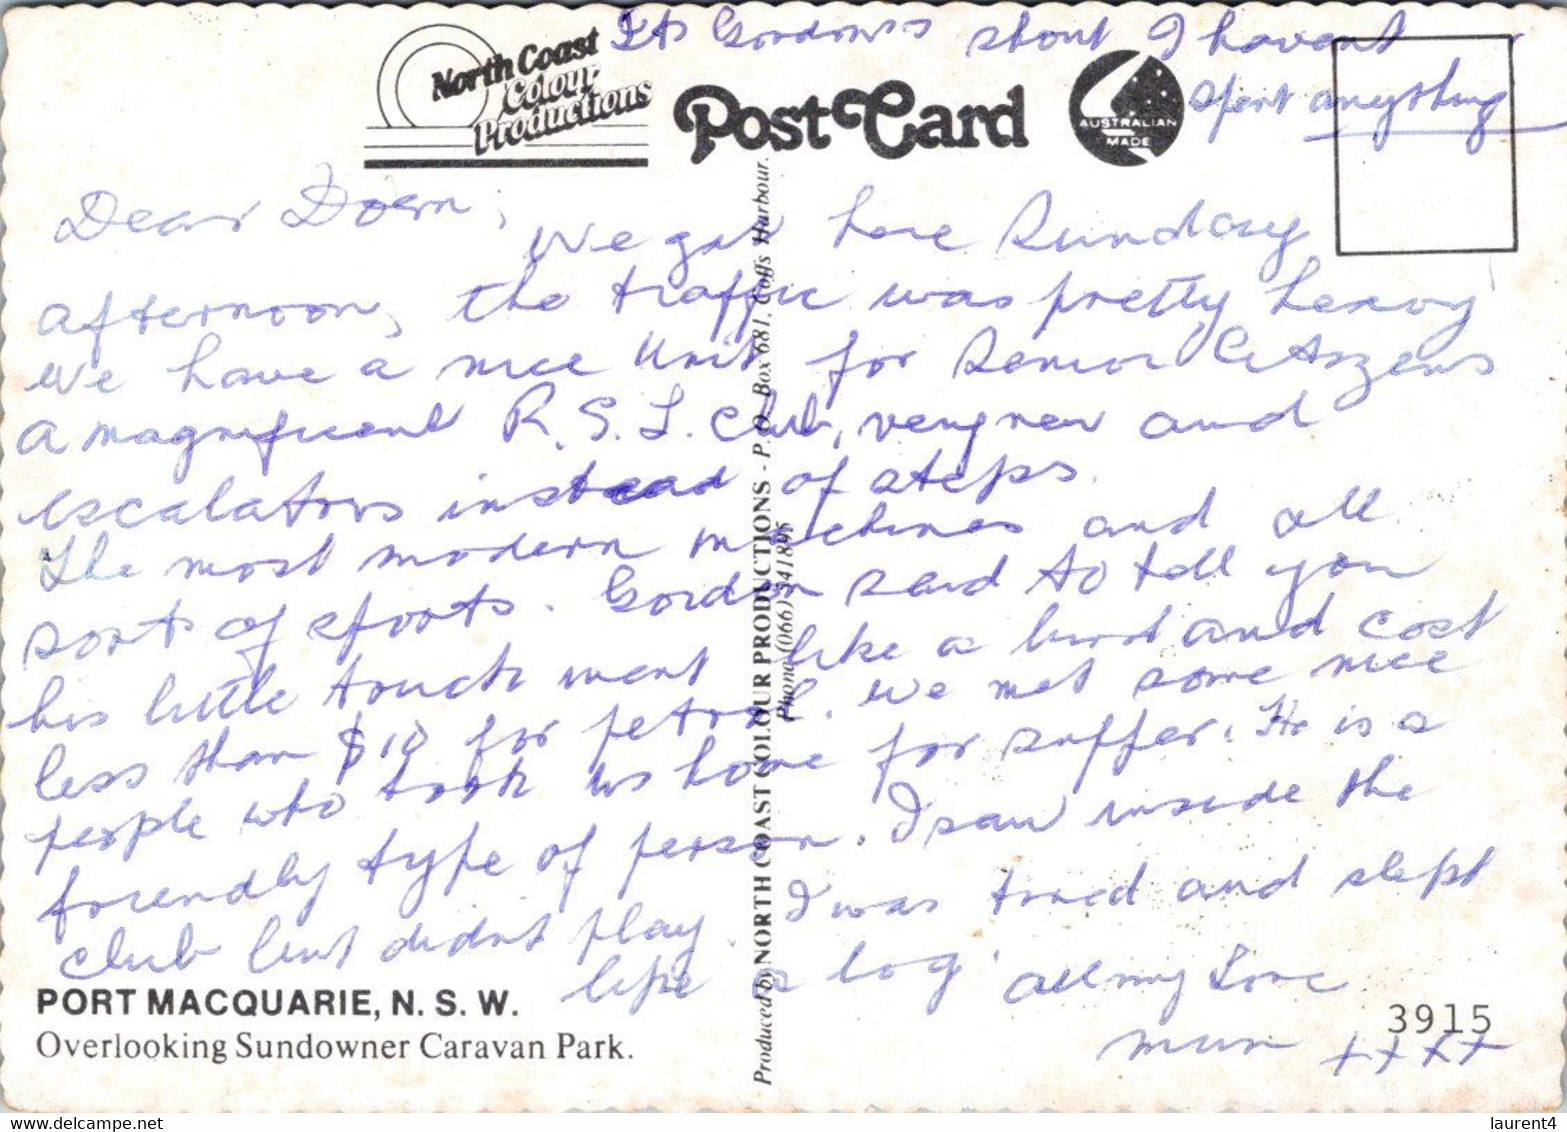 Its Gordons shout I havent
spent anything
North Coast
Colour
Productions
PostCard
AUSTRALIAN
MADE
Dear
We got here Sunday
afternoon, the traffic was pretty heavy
We have a nice Unit for Senior Citizens
a magnificent R.S.L. Club, very new and
escalators instead of steps.
The most modern machines and all
sorts of sports. Gordon said to tell you
his little truck went like a bird and cost
less than $18 for petrol. We met some nice
people who took us home for supper. He is a
friendly type of person. I saw inside the
club but didnt play. I was tired and slept
like a log. All my Love
Mum xxxx
PORT MACQUARIE, N. S. W.
Overlooking Sundowner Caravan Park.
3915
Produced by NORTH COAST COLOUR PRODUCTIONS - P.O. Box 681, Coffs Harbour.
Phone (066) 541895
www.delcampe.net
laurent4